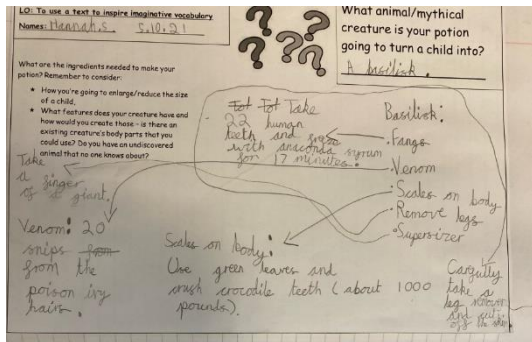 LO: To use a text to inspire imaginative vocabulary
Names: Hannah.S 5.10.21
What animal/mythical
creature is your potion
going to turn a child into?
A basilisk.
What are the ingredients needed to make your
potion? Remember to consider:
How you're going to enlarge/reduce the size
of a child.
What features does your creature have and
how would you create those - is there an
existing creature's body parts that you
could use? Do you have an undiscovered
animal that no one knows about?
Take
22 human
teeth and
with anaconda
for 17 minutes.
Basilisk:
Fangs
Venom
Scales on body
Remove legs
Supersizer
Take
a finger
of a giant.
Venom: 20
snips from
from the
poison ivy
hairs.
Scales on body:
Use green leaves and
crush crocodile teeth (about 1000
pounds).
Carefully
take a
leg
and cut
off the skin